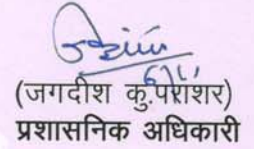 (जगदीश कु.पराशर)
प्रशासनिक अधिकारी